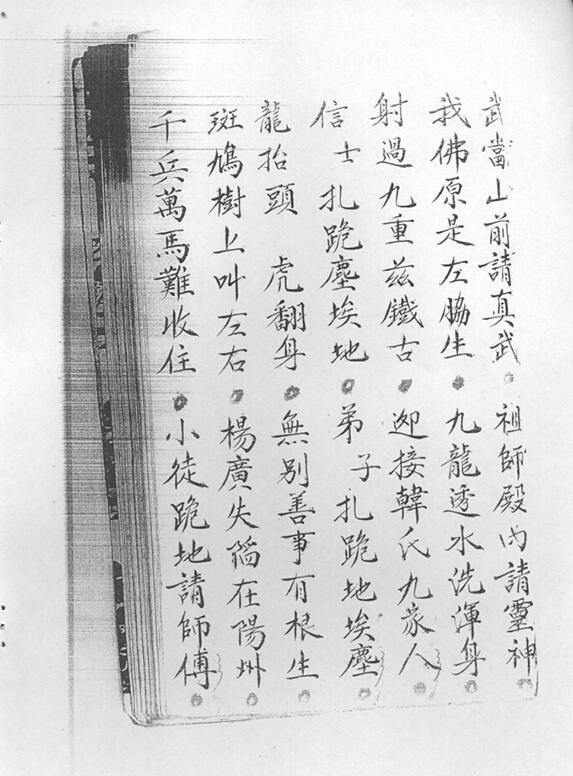 武當山前請真武。祖師殿內請靈神。
我佛原是左脇生。九龍透水洗渾身。
射過九重兹鐵古。迎接韓氏九家人。
信士扎跪塵埃地。弟子扎跪地埃塵。
龍抬頭 虎翻身。無別善事有根生。
斑鳩樹上叫左右。楊廣失陷在陽州。
千兵萬馬難收住。小徒跪地請師傅。